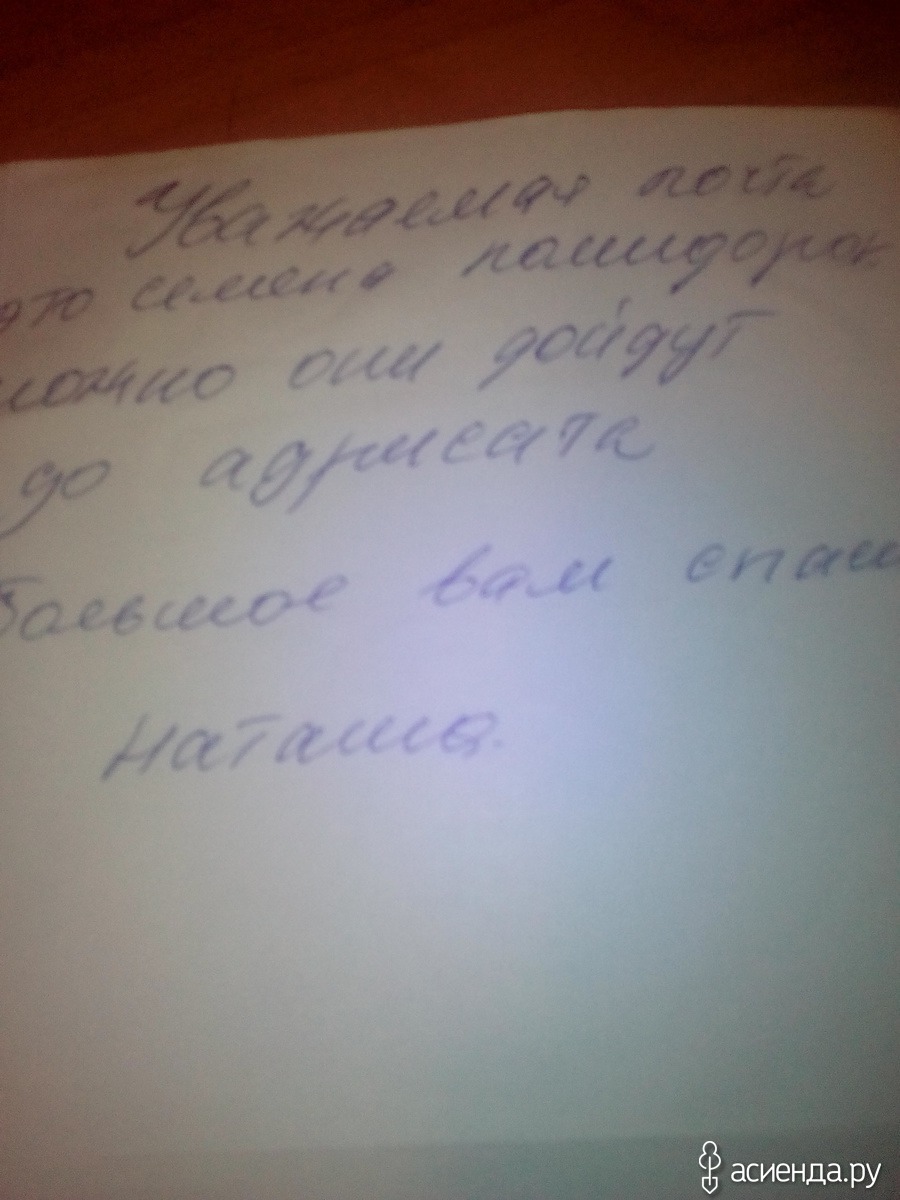 Уважаемая почта
это семена помидорок
можно они дойдут
до адрисата
Большое вам спаси
Наташа.
асиенда.ру